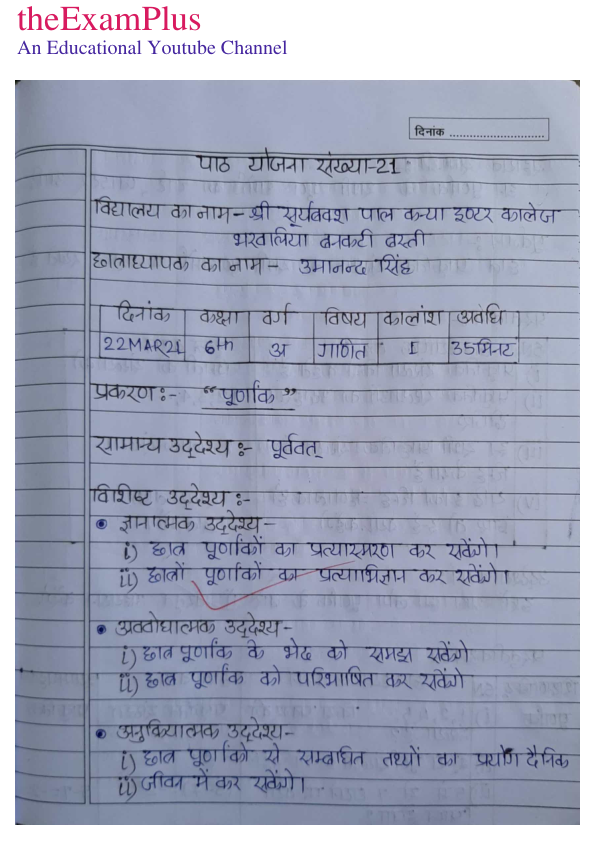 theExamPlus
An Educational Youtube Channel
दिनांक ............................
पाठ योजना संख्या-21
विद्यालय का नाम- श्री सूर्यबवश पाल कन्या इण्टर कालेज
भरवलिया बनकटी बस्ती
छात्राध्यापक का नाम- उमानन्द सिंह
दिनांक कक्षा वर्ग विषय कालांश अवधि
22MAR21 6th अ गणित I 35मिनट
प्रकरण:- "पूर्णांक"
सामान्य उद्देश्य:- पूर्ववत्
विशिष्ट उद्देश्य:-
• ज्ञानात्मक उद्देश्य-
i) छात्र पूर्णांकों का प्रत्यास्मरण कर सकेंगे।
ii) छात्रों पूर्णांकों का प्रत्याभिज्ञान कर सकेंगे।
• अवबोधात्मक उद्देश्य-
i) छात्र पूर्णांक के भेद को समझ सकेंगे
ii) छात्र पूर्णांक को परिभाषित कर सकेंगे
• अनुक्रियात्मक उद्देश्य-
i) छात्र पूर्णांको से सम्बंधित तथ्यों का प्रयोग दैनिक
ii) जीवन में कर सकेंगे।